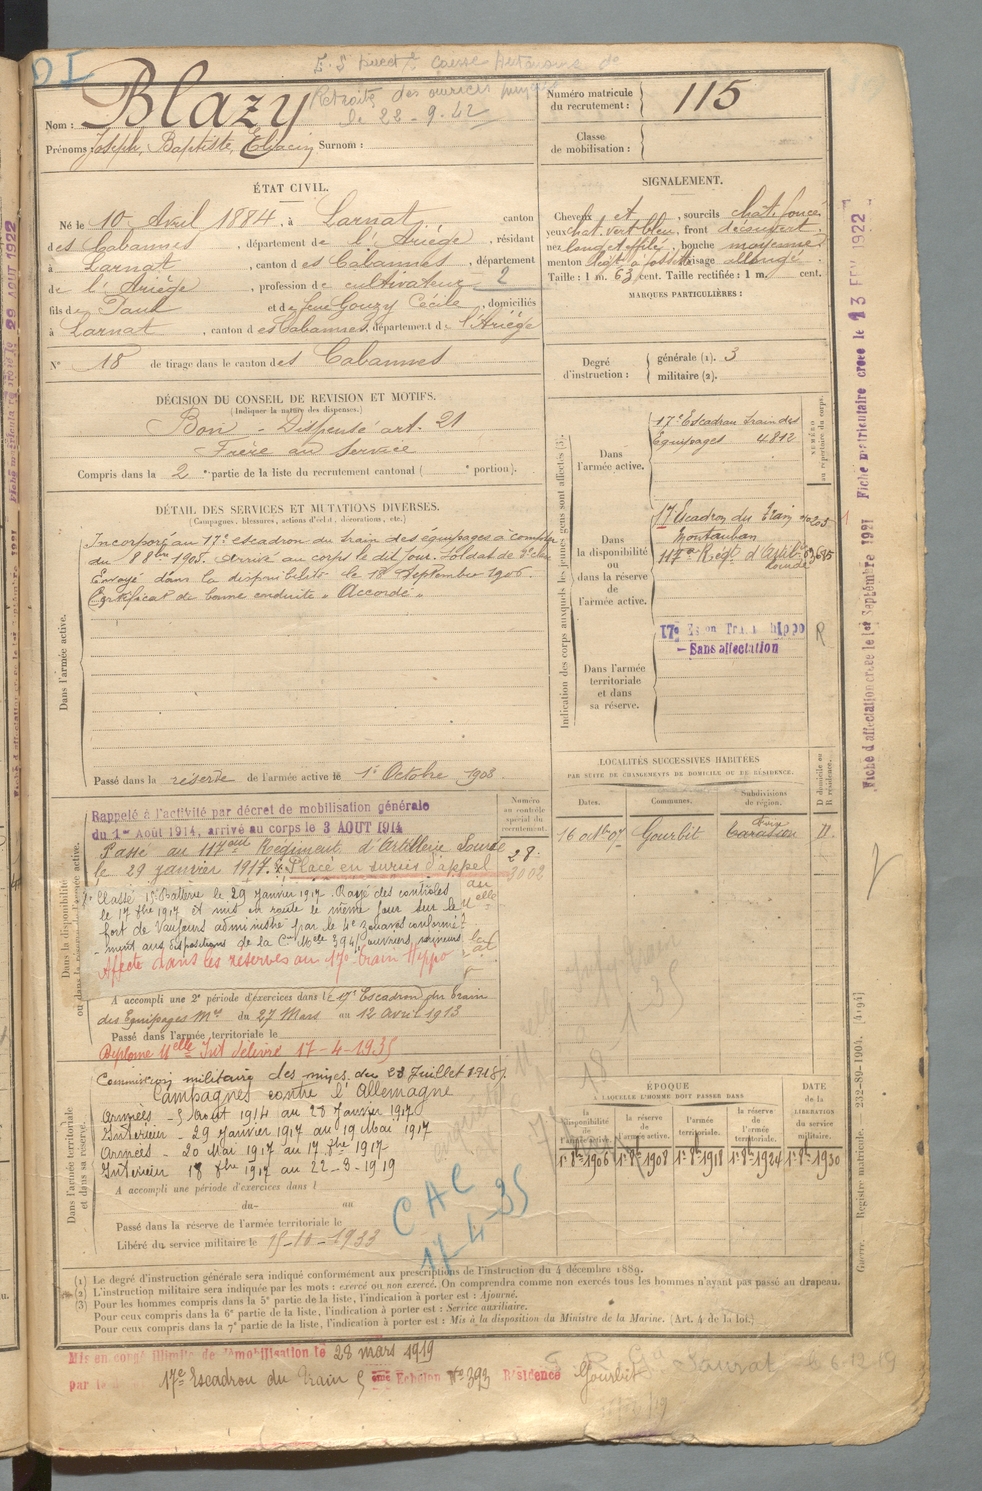 Blazy
Nom :
Prénoms : Joseph, Baptiste, Surnom :
le 22-9-42
Numéro matricule du recrutement : 115
Classe de mobilisation :
ÉTAT CIVIL.
Né le 10 Avril 1884, à Larnat, canton
des Cabannes, département de l'Ariège, résidant
à Larnat, canton des Cabannes, département
de l'Ariège, profession de cultivateur 2
fils de Paul et de feue Gouzy Cécile, domiciliés
à Larnat, canton des Cabannes, département de l'Ariège
N° 18 de tirage dans le canton des Cabannes
SIGNALEMENT.
Cheveux et, sourcils chât. foncé
yeux chât. vert bleu, front découvert
nez long et effilé, bouche moyenne
menton visage allongé.
Taille : 1 m. 63 cent. Taille rectifiée : 1 m. cent.
MARQUES PARTICULIÈRES :
Degré d'instruction :
générale (1). 3
militaire (2).
DÉCISION DU CONSEIL DE REVISION ET MOTIFS.
(Indiquer la nature des dispenses.)
Bon - Dispensé art. 21
Frère au Service
Compris dans la 2e partie de la liste du recrutement cantonal ( e portion).
DÉTAIL DES SERVICES ET MUTATIONS DIVERSES.
(Campagnes, blessures, actions d'éclat, décorations, etc.)
Dans l'armée active.
Incorporé au 17e escadron du train des équipages à compter
du 8 8bre 1905. Arrivé au corps le dit jour. Soldat de 2e classe
Envoyé dans la disponibilité le 18 Septembre 1906.
Certificat de bonne conduite "Accordé"
Passé dans la réserve de l'armée active le 1er Octobre 1908
Indication des corps auxquels les jeunes gens sont affectés (3).
NUMÉRO au répertoire du corps.
Dans l'armée active.
17e Escadron Train des
Equipages 4812
Dans la disponibilité ou dans la réserve de l'armée active.
17 Escadron du Train
Montauban
117e Régt d'Artil. lourde
Dans l'armée territoriale et dans sa réserve.
17e Eson Train hippo R
- Sans affectation
LOCALITÉS SUCCESSIVES HABITÉES
PAR SUITE DE CHANGEMENTS DE DOMICILE OU DE RÉSIDENCE.
Dates. Communes. Subdivisions de région. D domicile ou R résidence.
Gourbit
Dans la disponibilité ou dans la réserve de l'armée active.
Numéro au contrôle spécial du recrutement.
Rappelé à l'activité par décret de mobilisation générale
du 1er Août 1914, arrivé au corps le 3 AOUT 1914
Passé au 117ème Régiment d'Artillerie Lourde
le 29 janvier 1917. Placé en sursis d'appel
Classé 15e Batterie le 29 Janvier 1917. Rayé des contrôles
le 17 9bre 1917 et mis en route le même jour sur le
fort de Vaujours administré par le 4e Zouaves conformé-
-ment aux dispositions de la
Affecté dans les réserves au 17e train Hippo
A accompli une 2e période d'exercices dans le 17e Escadron du train
des Equipages Mres du 27 Mars au 12 Avril 1913
Passé dans l'armée territoriale le
Diplome 11elle délivré 17-4-1935
Dans l'armée territoriale et dans sa réserve.
Commission militaire des mines du 28 Juillet 1918.
Campagnes contre l'Allemagne
Armées - 3 Août 1914 au 28 Janvier 1917
Intérieur - 29 Janvier 1917 au 19 Mai 1917
Armées - 20 Mai 1917 au 17 9bre 1917
Intérieur 18 9bre 1917 au 22-3-1919
A accompli une période d'exercices dans l
du au
Passé dans la réserve de l'armée territoriale le
Libéré du service militaire le 15-10-1933
CAC
17-4-35
ÉPOQUE
À LAQUELLE L'HOMME DOIT PASSER DANS
la disponibilité de l'armée active. la réserve de l'armée active. l'armée territoriale. la réserve de l'armée territoriale. DATE de la LIBÉRATION du service militaire.
1er 8bre 1906 1er 8bre 1908 1er 8bre 1918 1er 8bre 1924 1er 8bre 1930
(1) Le degré d'instruction générale sera indiqué conformément aux prescriptions de l'instruction du 4 décembre 1889.
(2) L'instruction militaire sera indiquée par les mots : exercé ou non exercé. On comprendra comme non exercés tous les hommes n'ayant pas passé au drapeau.
(3) Pour les hommes compris dans la 5e partie de la liste, l'indication à porter est : Ajourné.
Pour ceux compris dans la 6e partie de la liste, l'indication à porter est : Service auxiliaire.
Pour ceux compris dans la 7e partie de la liste, l'indication à porter est : Mis à la disposition du Ministre de la Marine. (Art. 4 de la loi.)
Mis en congé illimité de démobilisation le 23 mars 1919
par le 17e Escadron du Train 5 ème Echelon No 393 Résidence Gourbit
Saurat 6-12-19
Fiche matriculaire créée le 13 FEV 1922
Fiche d'affectation créée le 1er Septembre 1921
Fiche matriculaire créée le 29 AOUT 1922
Guerre. Registre matricule. — 232-89-1904. [4194]